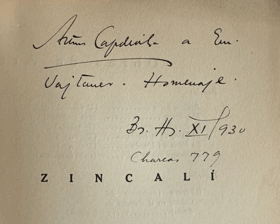 Arturo Capdevila a Em.
Vajtauer. Homenaje.
Bs. As. XI/930
Charcas 779
ZINCALÍ